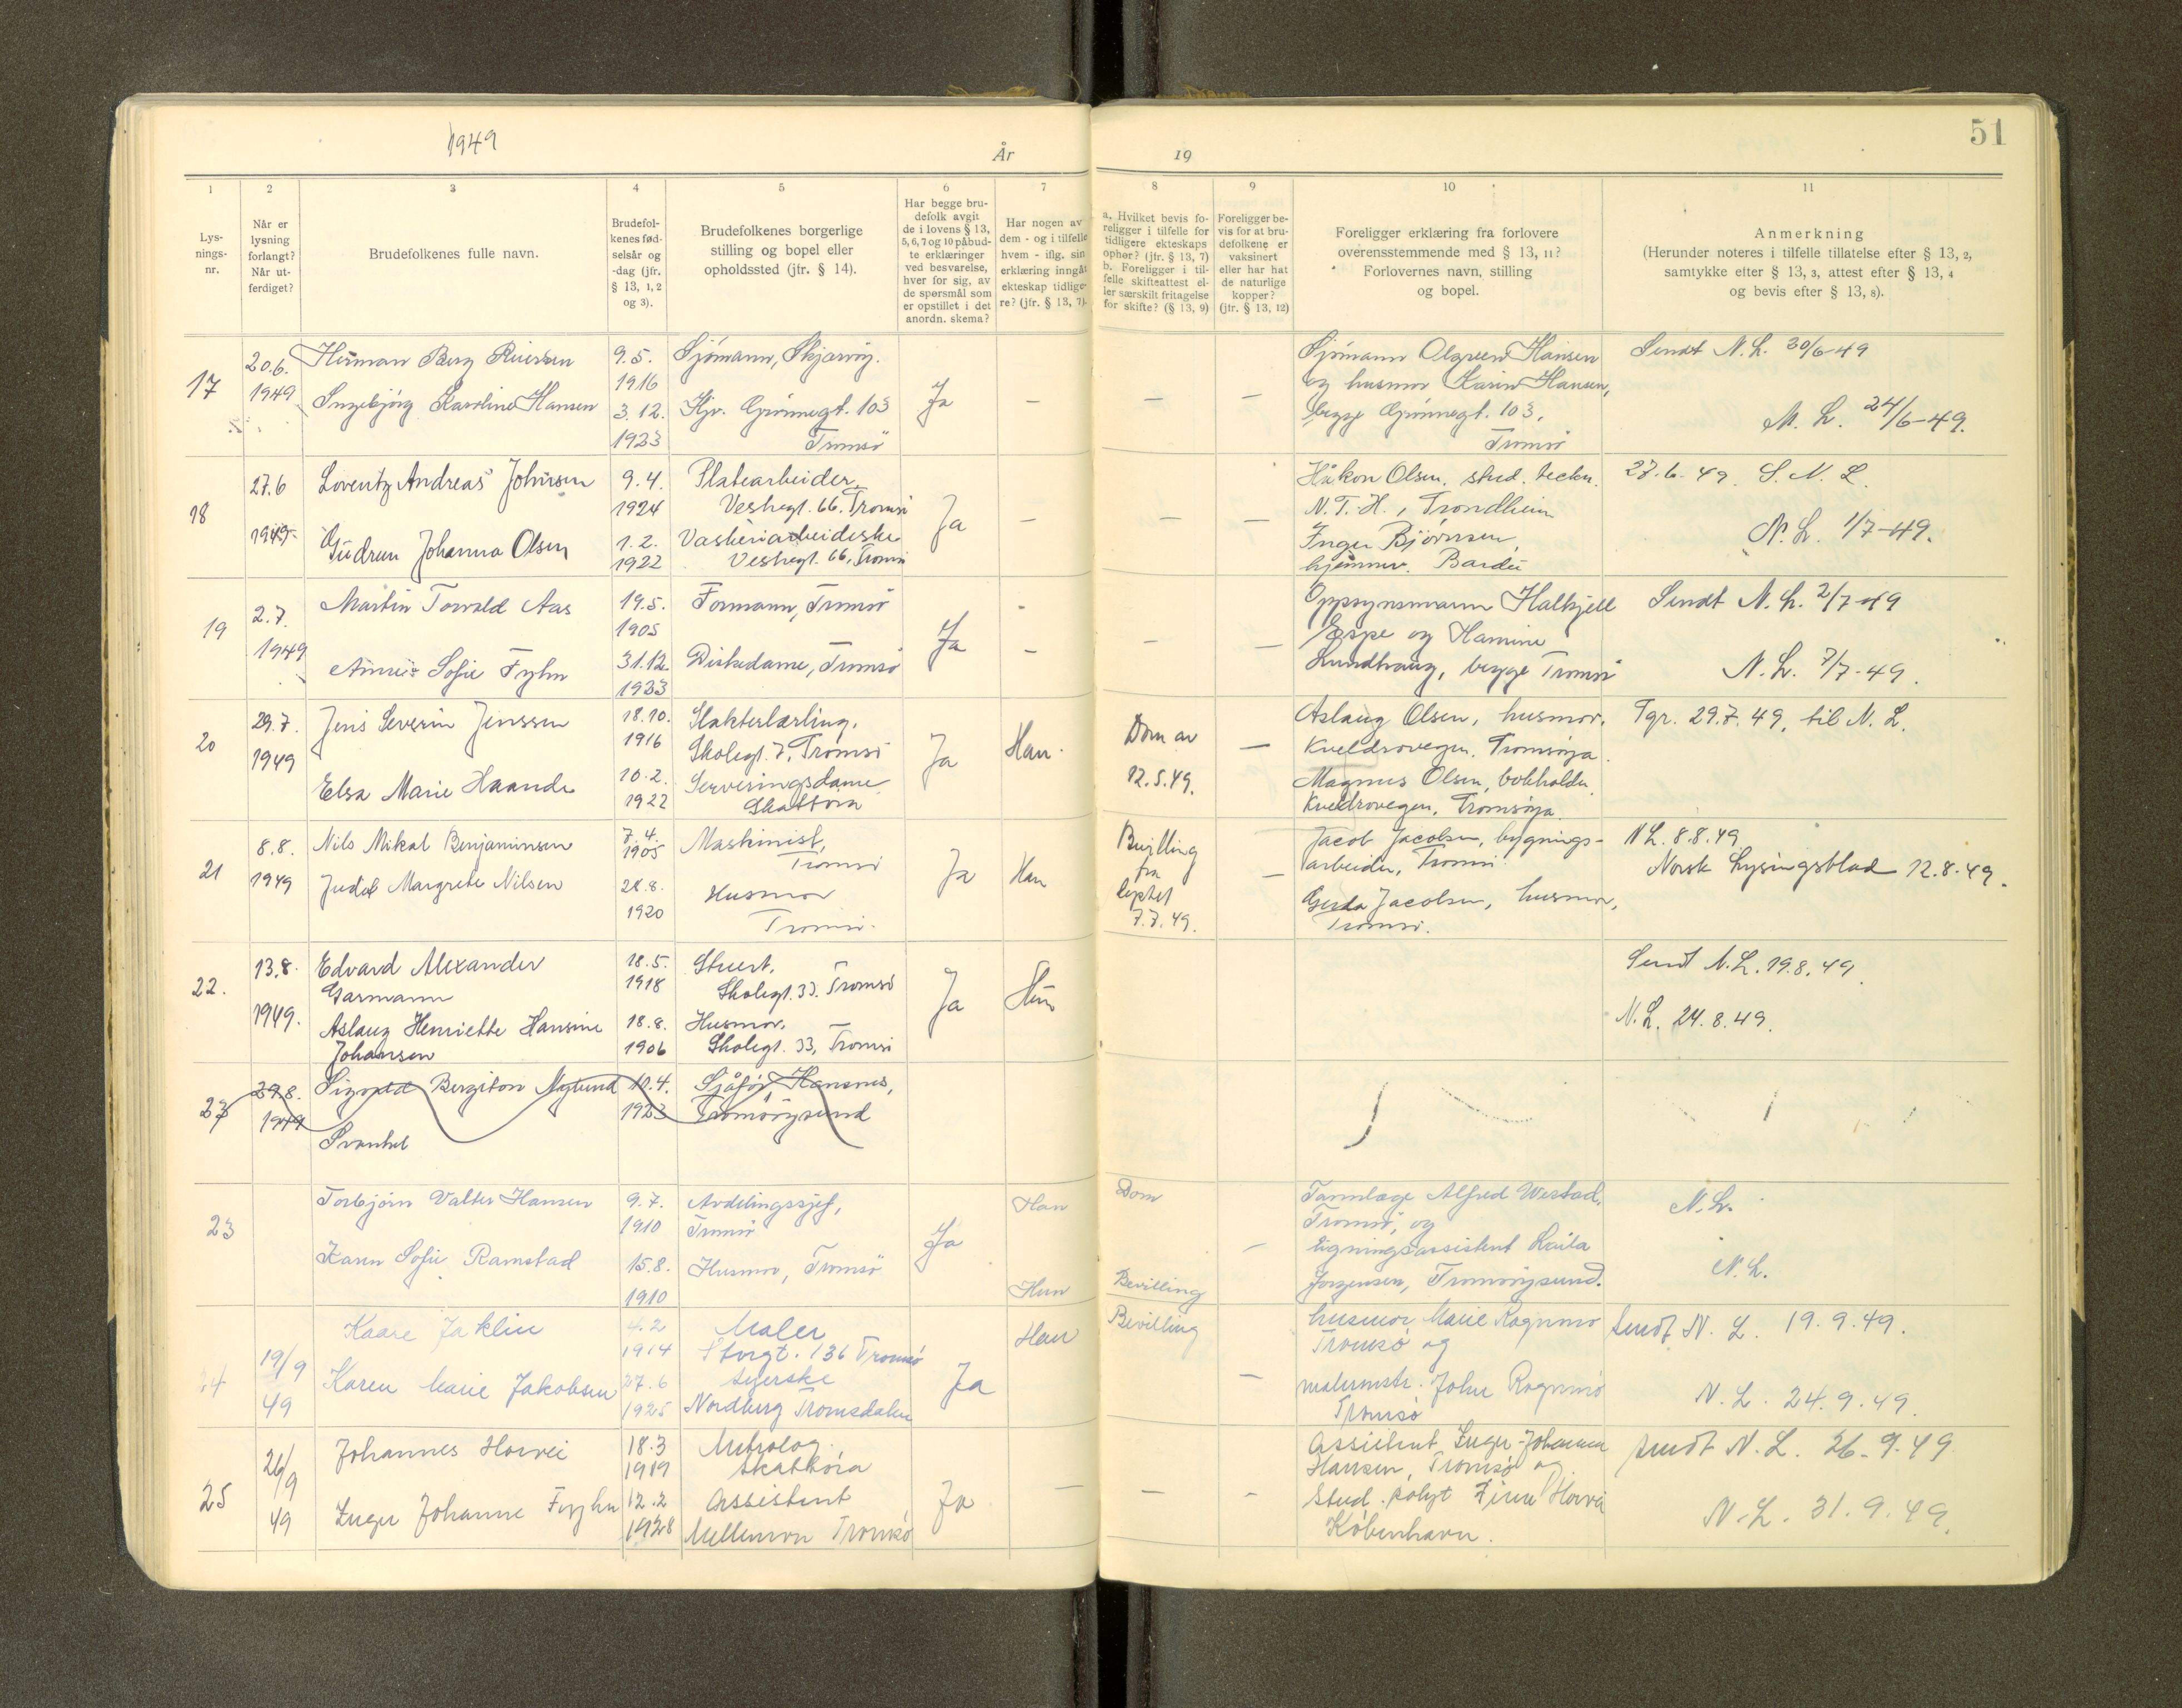 1949
År
19
51
1
2
3
4
5
6
7
8
9
10
11
Lys-
nings-
nr.
Når er
lysning
forlangt?
Når ut-
ferdiget?
Brudefolkenes fulle navn.
Brudefol-
kenes fød-
selsår og
-dag (jfr.
§ 13, 1, 2
og 3).
Brudefolkenes borgerlige
stilling og bopel eller
opholdssted (jfr. § 14).
Har begge bru-
defolk avgit
de i lovens § 13,
5, 6, 7 og 10 påbud-
te erklæringer
ved besvarelse,
hver for sig, av
de spørsmål som
er opstillet i det
anordn. skema?
Har nogen av
dem - og i tilfelle
hvem - iflg. sin
erklæring inngåt
ekteskap tidlige-
re? (jfr. § 13, 7).
a. Hvilket bevis fo-
religger i tilfelle for
tidligere ekteskaps
ophør? (jfr. § 13, 7)
b. Foreligger i til-
felle skifteattest el-
ler særskilt fritagelse
for skifte? (§ 13, 9)
Foreligger be-
vis for at bru-
defolkene er
vaksinert
eller har hat
de naturlige
kopper?
(jfr. § 13, 12)
Foreligger erklæring fra forlovere
overensstemmende med § 13, 11?
Forlovernes navn, stilling
og bopel.
Anmerkning
(Herunder noteres i tilfelle tillatelse efter § 13, 2,
samtykke efter § 13, 3, attest efter § 13, 4
og bevis efter § 13, 8).
17
20.6.
1949
Herman Berg
Ingebjörg Karoline Hansen
9.5.
1916
3.12.
1923
Sjömann, Skjærvöy.
Hjv. Grönnegt. 103
Tromsö
Ja
—
—
—
Sjömann Hansen
og husmor Karin Hansen,
begge Grönnegt. 103,
Tromsö
Sendt N.L. 30/6-49
N. L. 24/6-49.
18
27.6
1949
Lorentz Andreas Johnsen
Gudrun Johanna Olsen
9.4.
1924
1.2.
1922
Platearbeider,
Vestregt. 66, Tromsö
Vaskeriarbeiderske
Vestregt. 66, Tromsö
Ja
—
—
—
Håkon Olsen, stud. techn.
N.T.H., Trondheim
Inger Björnsen,
hjemmev. Bardu
27.6.49. S. N. L.
N. L. 1/7-49.
19
2.7.
1949
Martin Torvald Aas
Sofie Fyhn
19.5.
1905
31.12.
1923
Formann, Tromsö
Diskedame, Tromsö
Ja
-
—
—
—
Oppsynsmann Halkjell
Espe og Hamine
Lundhaug, begge Tromsö
Sendt N. L. 2/7-49
N. L. 7/7-49.
20
29.7.
1949
Jens Severin Jenssen
Elsa Marie Haande
18.10.
1916
10.2.
1922
Slakterlærling,
Skolegt. 7, Tromsö
Serveringsdame
Skattöra
Ja
Han
Dom av
12.5.49.
—
Aslaug Olsen, husmor,
Kveldrovegen, Tromsöya.
Magnus Olsen, bokholder,
Kveldrovegen, Tromsöya.
Tgr. 29.7.49, til N. L.
21
8.8.
1949
Nils Mikal Benjaminsen
Judel Margrete Nilsen
7.4.
1905
28.8.
1920
Maskinist,
Tromsö
Husmor
Tromsö.
Ja
Han
Bevilling
fra
7.7.49.
—
Jacob Jacobsen, bygnings-
arbeider, Tromsö.
Gerda Jacobsen, husmor,
Tromsö.
N L. 8.8.49
Norsk Lysingsblad 12.8.49.
22.
13.8.
1949.
Edvard Alexander
Garmann
Aslaug Henriette Hansine
Johansen
18.5.
1918
18.8.
1906
Stuert,
Skolegt. 33, Tromsö
Husmor,
Skolegt. 33, Tromsö
Ja
Hun
Sendt N.L. 19.8.49.
N. L. 24.8.49.
23
29.8.
1949
Bergiton Nylund
Svanhel
10.4.
1923
Sjåför, Hansnes,
Tromsöysund
23
Torbjörn Valter Hansen
Karen Sofie Ramstad
9.7.
1910
15.8.
1910
Avdelingssjef,
Tromsö
Husmor, Tromsö
Ja
Han
Hun
Dom
Bevilling
—
Tannlæge Alfred Westad,
Tromsö, og
ligningsassistent Laila
Jorgensen, Tromsöysund.
N.L.
N. L.
24
19/9
49
Kaare Jaklin
Karen Marie Jakobsen
4.2
1914
27.6
1925
Maler
Storgt. 136 Tromsö
syerske
Nordberg Tromsdalen
Ja
Han
Bevilling
—
husmor Marie Rognmo
Tromsö og
malermstr. John Rognmo
Tromsö
sendt N. L. 19.9.49.
N. L. 24.9.49.
25
26/9
49
Johannes Horvei
Inger Johanne Fyhn
18.3
1919
12.2
1928
Metrolog,
Skattöra
Assistent
Mellemvn Tromsö
Ja
—
—
-
Assistent Inger Johanne
Hansen, Tromsö og
Stud. polyt Finn Horvei
Köbenhavn.
sendt N. L. 26.9.49
N. L. 31.9.49.